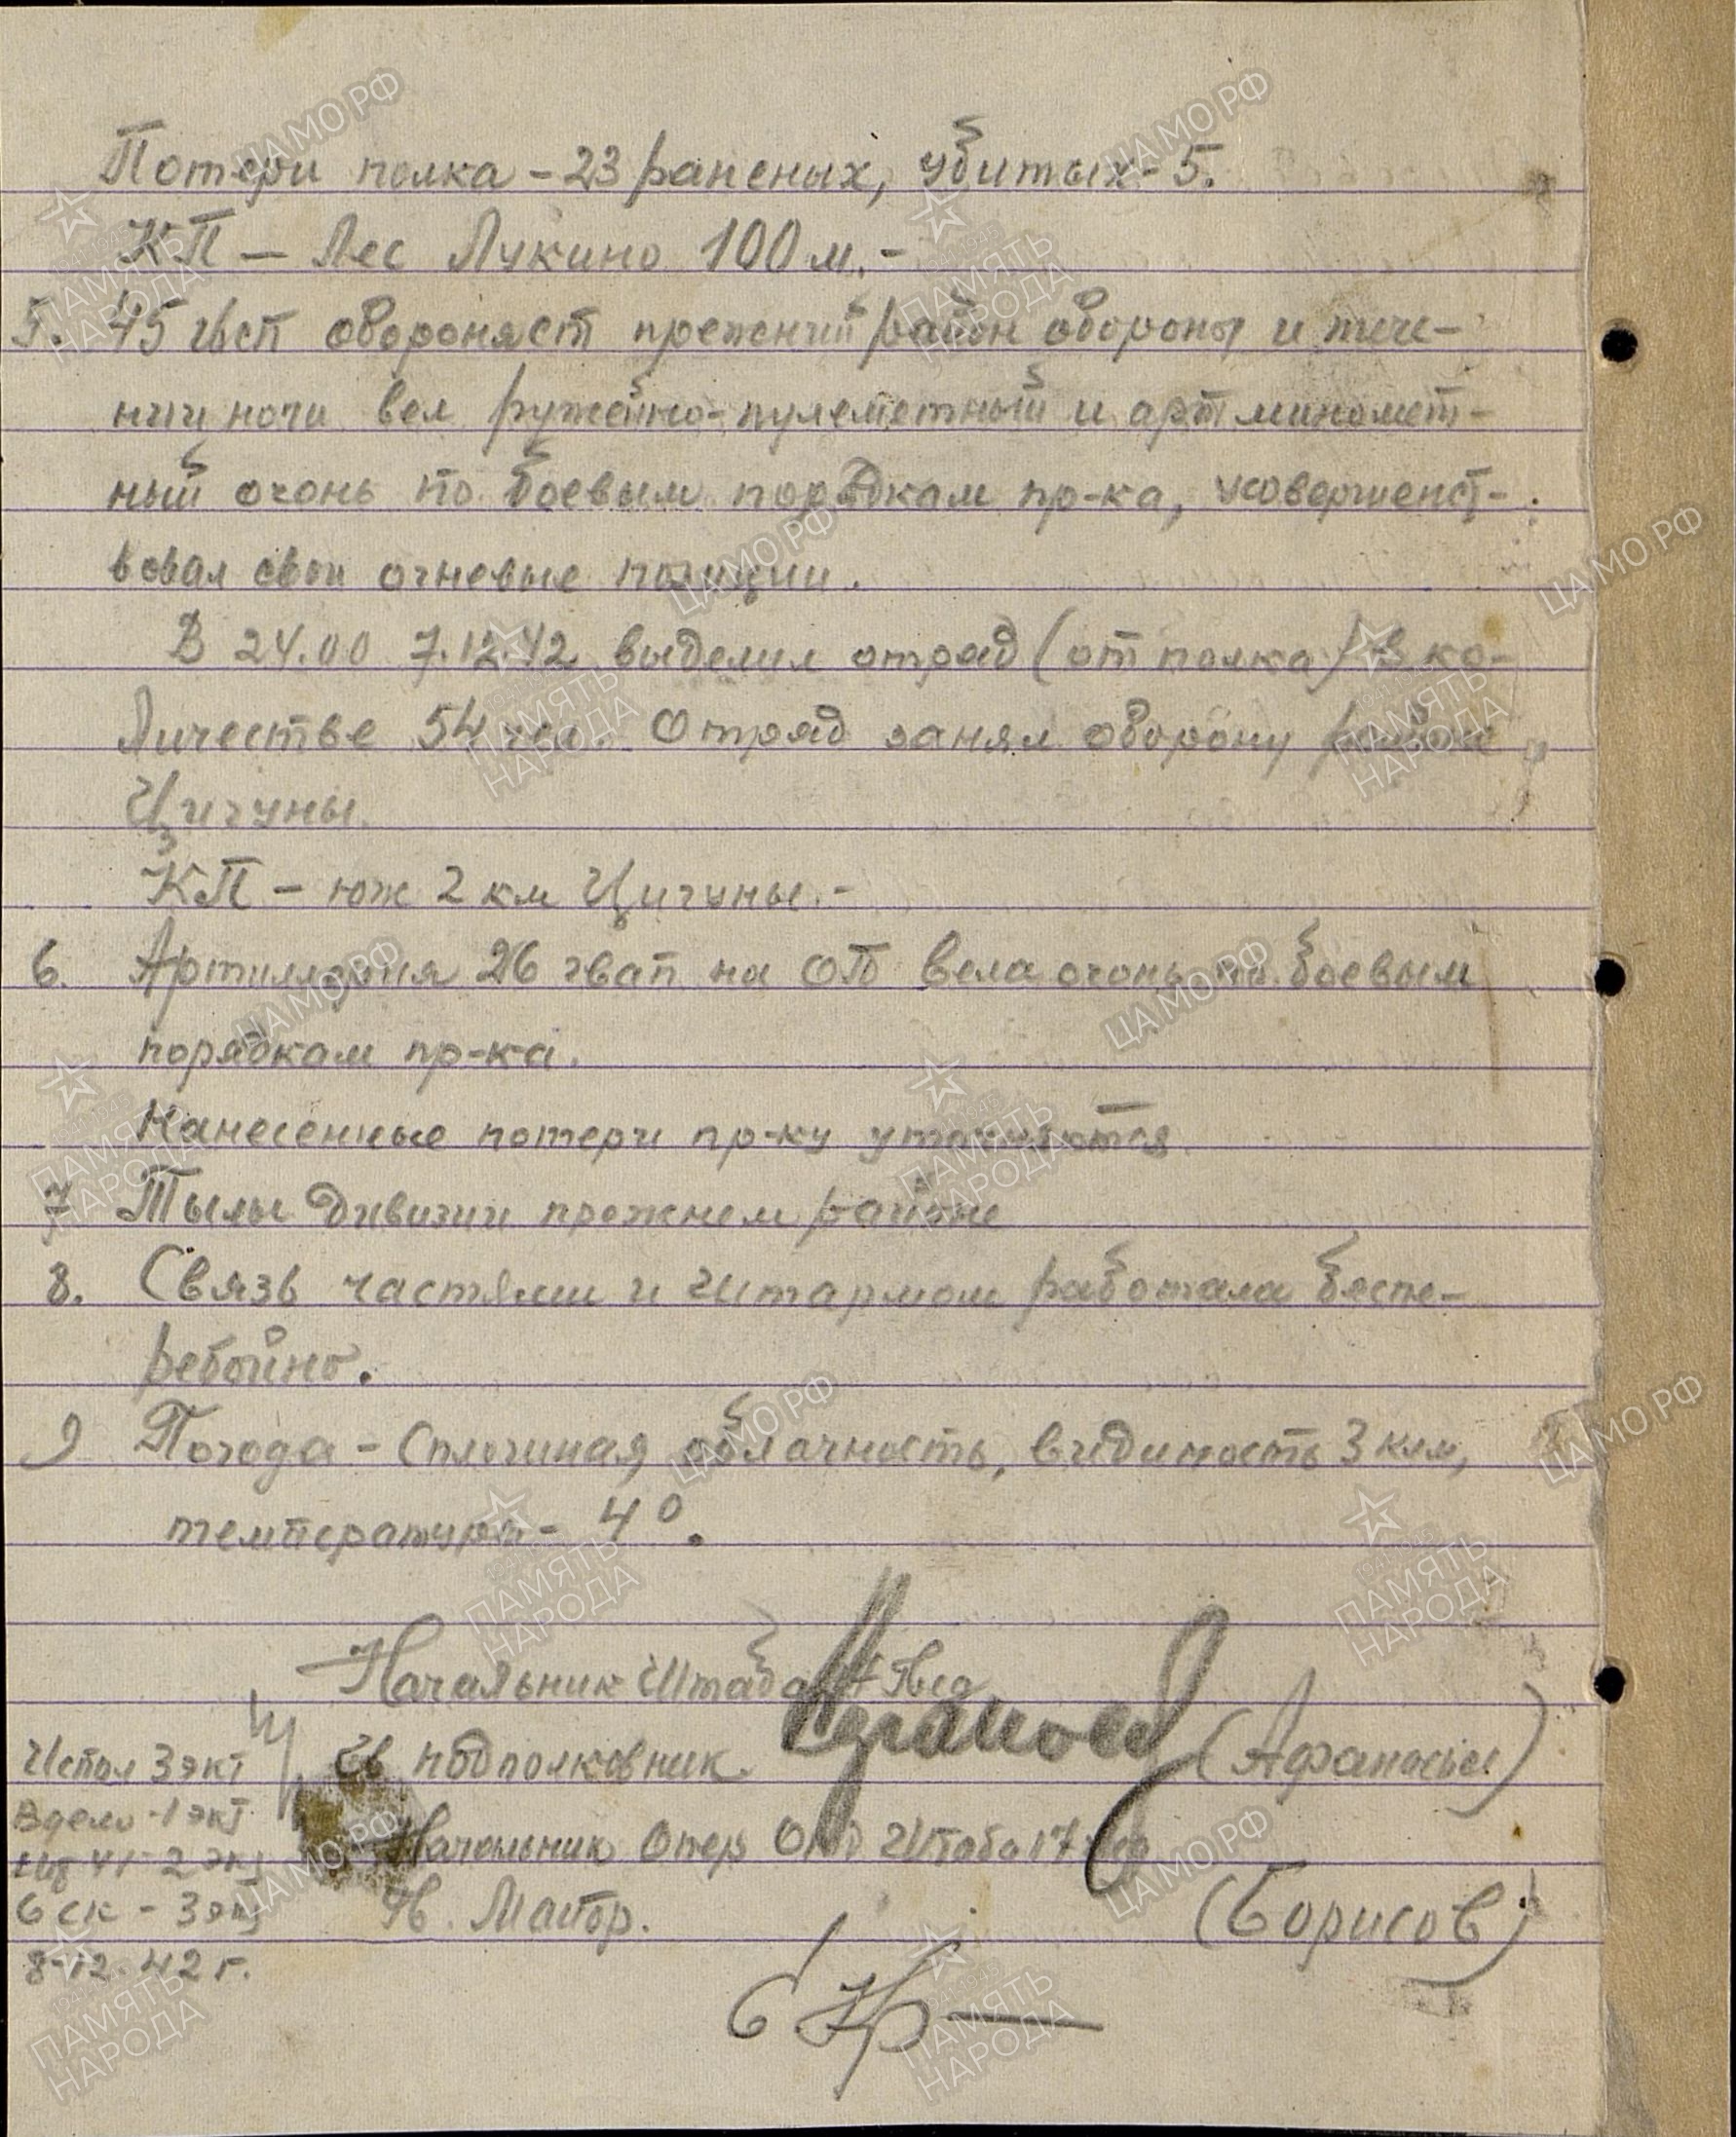 Потери полка – 23 раненых, убитых – 5.
КП – Лес Лукино 100 м. –
5. 45 гвсп обороняет прежний район обороны и тече-
нии ночи вел ружейно-пулеметный и арт миномет-
ный огонь по боевым порядкам пр-ка, усовершенст-
вовал свои огневые позиции.
В 24.00 7.12.42 выделил отряд (от полка) в ко-
личестве 54 чел. Отряд занял оборону районе
Цигуны.
КП – юж 2 км Цигуны. –
6. Артиллерия 26 гвап на ОП вела огонь по боевым
порядкам пр-ка.
Нанесенные потери пр-ку уточняются
7 Тылы дивизии прежнем районе
8. Связь частями и штармом работала беспе-
ребойно.
9 Погода – Сплошная облачность, видимость 3 клм,
температура – 4°.
Начальник Штаба 17 Гвсд
Гв подполковник (Афанасьев)
Начальник Опер Отд Штаба 17 гвсд
Гв. Майор. (Борисов)
Испол 3 экз
В дело - 1 экз
41 - 2 экз
6 ск - 3 экз
8-12.42 г.
ЦАМО РФ
ПАМЯТЬ
НАРОДА